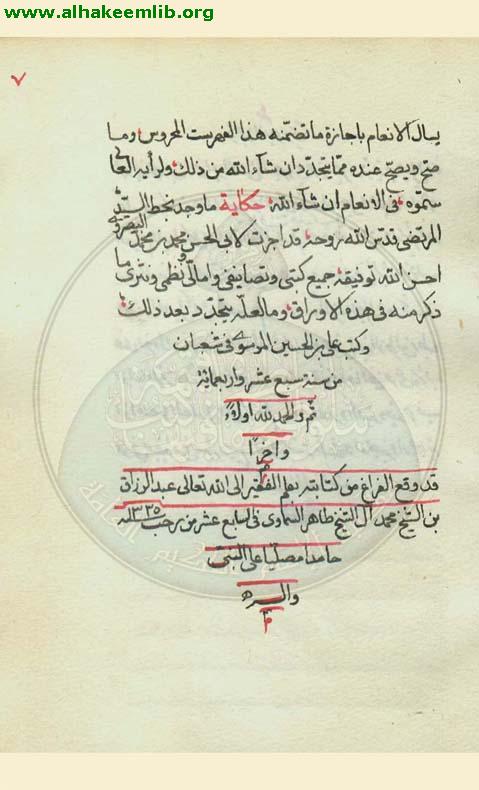 www.alhakeemlib.org
٧
يسال الانعام باجازة ما تضمّنه هذا الفهرست المحروس وما
صحّ ويصحّ عنده ممّا يتجدّد ان شاء الله من ذلك ولرأيه العالي
سموّه في الانعام ان شاء الله حكاية ما وجد بخط السيّد
المرتضى قدّس الله روحه قد اجزت لابي الحسن محمد بن محمد البصروي
احسن الله توفيقه جميع كتبي وتصانيفي وامالي ونظمي ونثري ما
ذكر منه في هذه الاوراق وما لعلّه يتجدّد بعد ذلك
وكتب علي بن الحسين الموسوي في شعبان
من سنة سبع عشر واربعمائة
تم والحمد لله اولاً
واخراً
قد وقع الفراغ من كتابته بقلم الفقير الى الله تعالى عبد الرزاق
بن الشيخ محمد آل الشيخ طاهر السماوي في السابع عشر من رجب ١٣٣٥
حامدا مصليا على النبي
واله
م